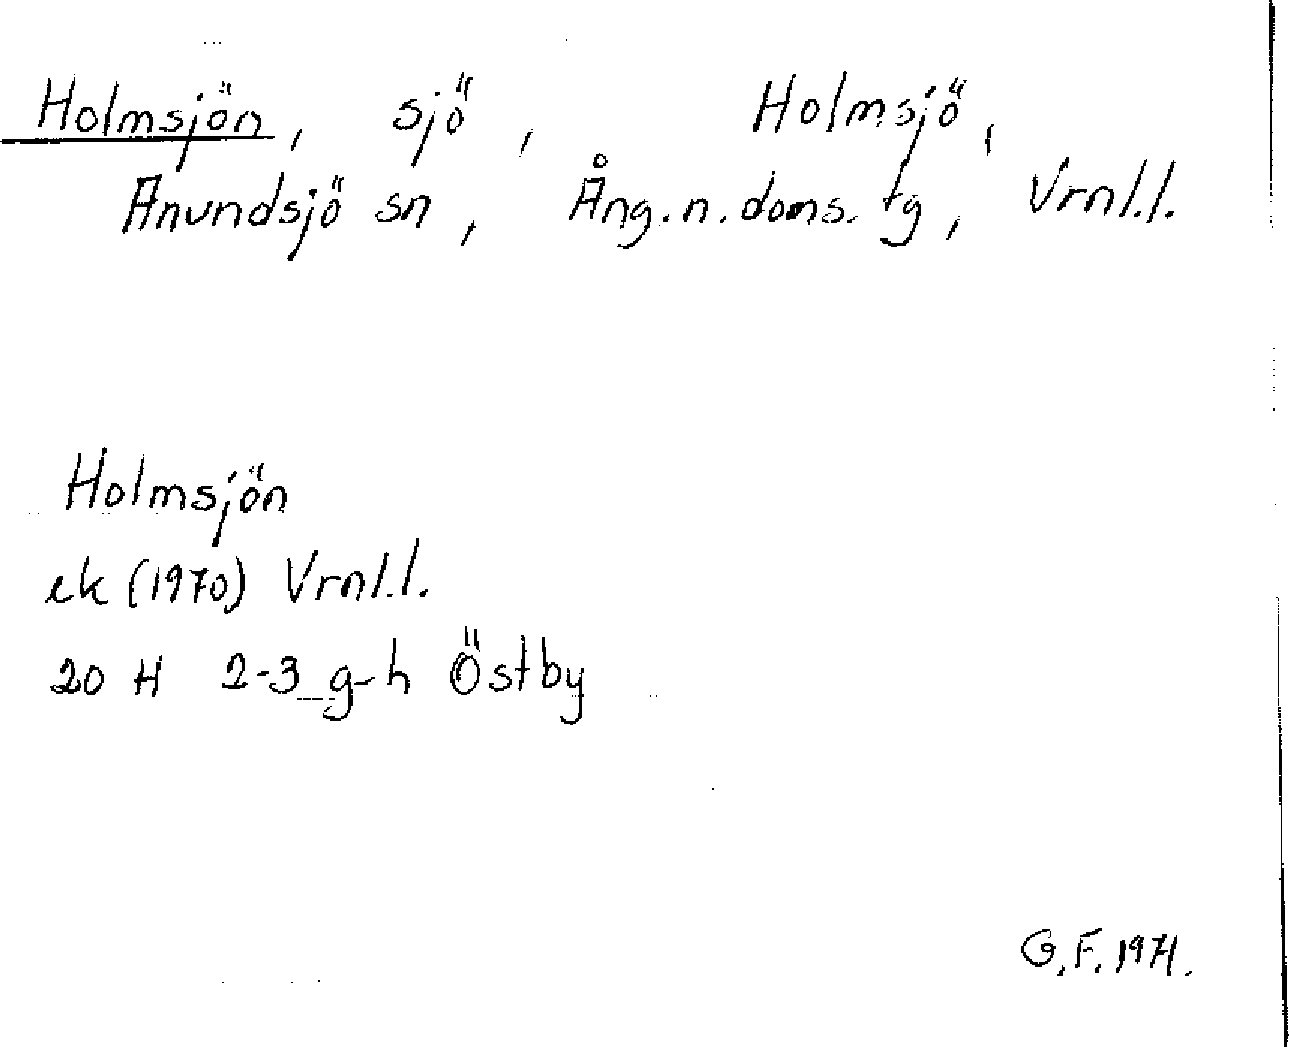 Holmsjön, sjö, Holmsjö,
Anundsjö sn, Ång.n.doms.tg, Vrnl.l.
Holmsjön
ek (1970) Vrnl.l.
20 H 2-3 g-h Östby
G.F. 1971.